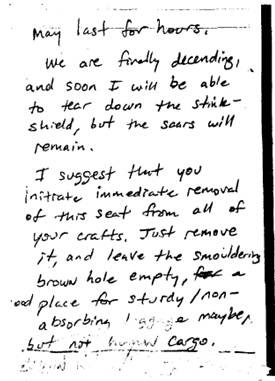 may last for hours.
We are finally decending,
and soon I will be able
to tear down the stink-
shield, but the scars will
remain.
I suggest that you
initrate immediate removal
of this seat from all of
your crafts. Just remove
it, and leave the smouldering
brown hole empty, a
place for sturdy/non-
absorbing maybe,
but not human cargo.